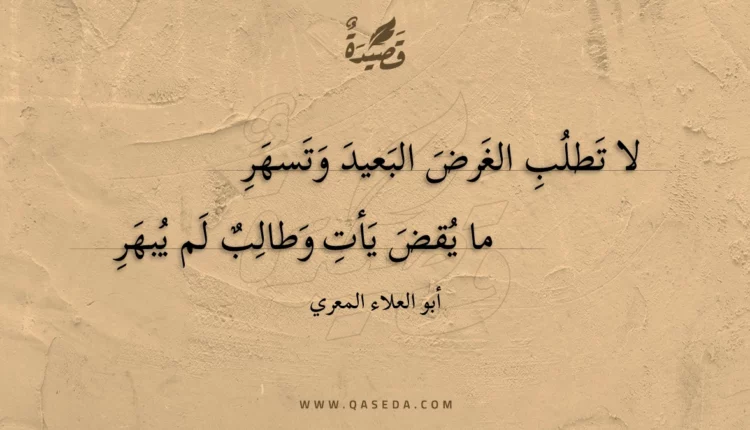 قَصِيْدَةٌ
لا تَطلُبِ الغَرضَ البَعيدَ وَتَسهَرِ
ما يُقضَ يَأتِ وَطالِبٌ لَم يُبهَرِ
أبو العلاء المعري
WWW.QASEDA.COM